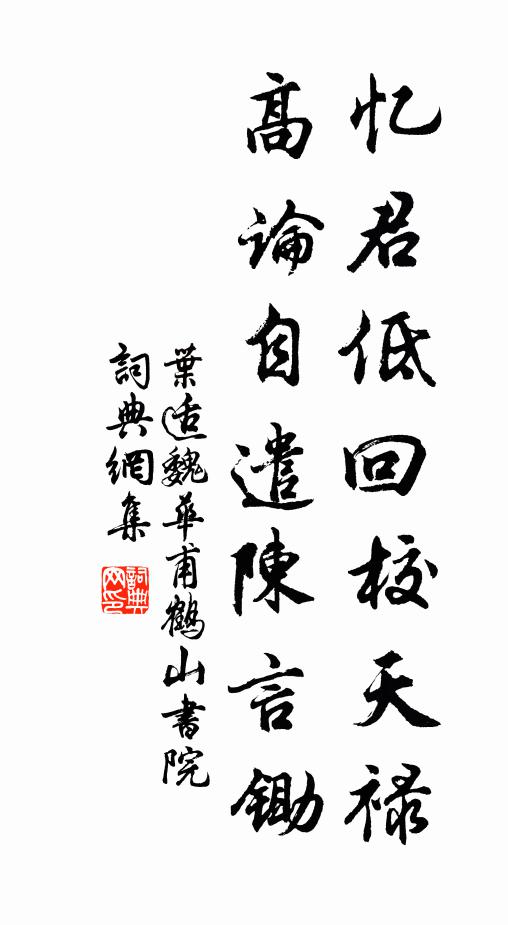 忆君低回校天禄
高論自遣陳言鋤
葉适魏華甫鶴山書院
詞典網集
詞典网印